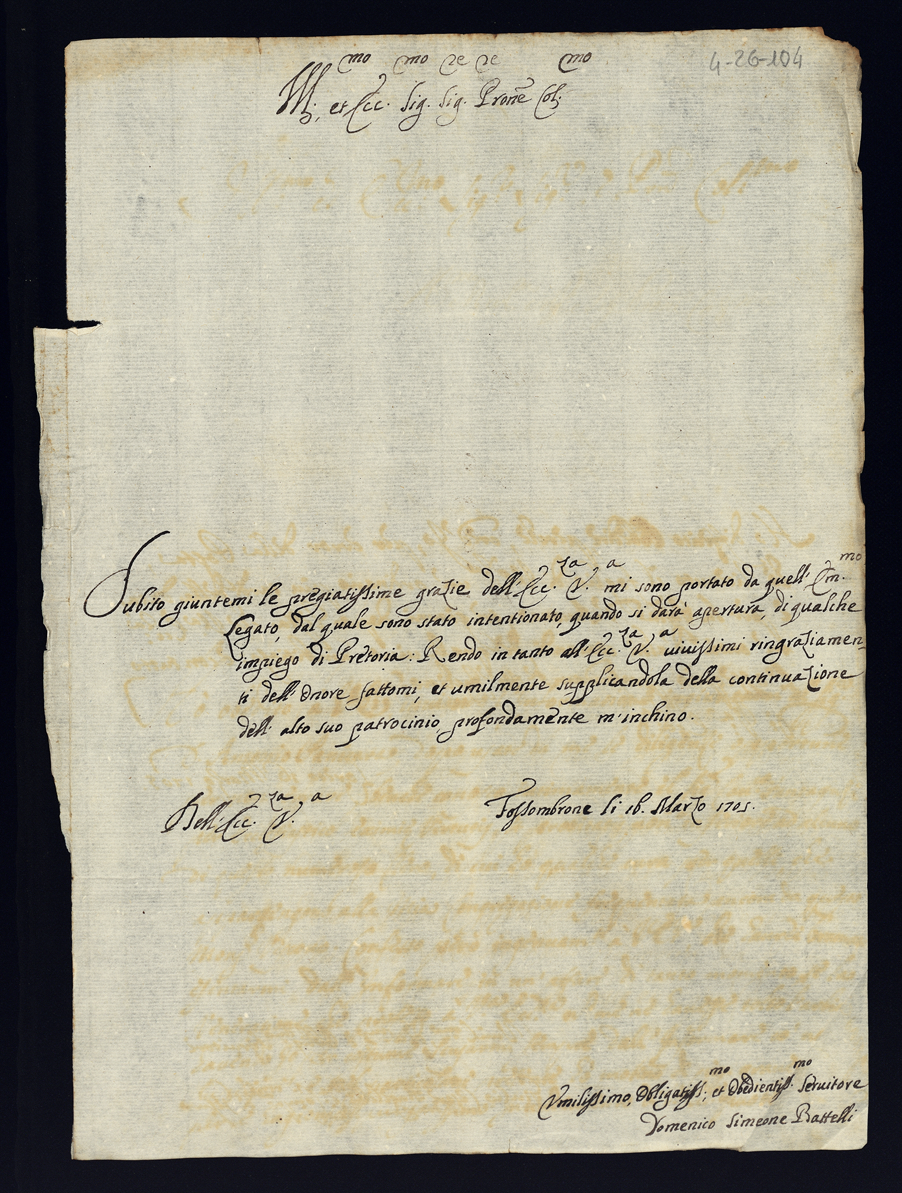 4-26-104
Ill.mo et Ecc.mo Sig.re Sig.re Pron͞e Col.mo
Subito giuntemi le pregiatissime grazie dell'Ecc.za V.a mi sono portato da quell'Em.mo
Legato, dal quale sono stato intentionato, quando si darà apertura, di qualche
impiego di Pretoria: Rendo in tanto all'Ecc.za V.a vivissimi ringraziamen-
ti dell'Onore fattomi, et umilmente supplicandola della continuazione
dell'alto suo patrocinio, profondamente m'inchino.
Dell'Ecc.za V.a
Fossombrone li 16. Marzo 1701.
Umilissimo, Obligatiss.mo, et Obedientiss.mo Servitore
Domenico Simeone Battelli